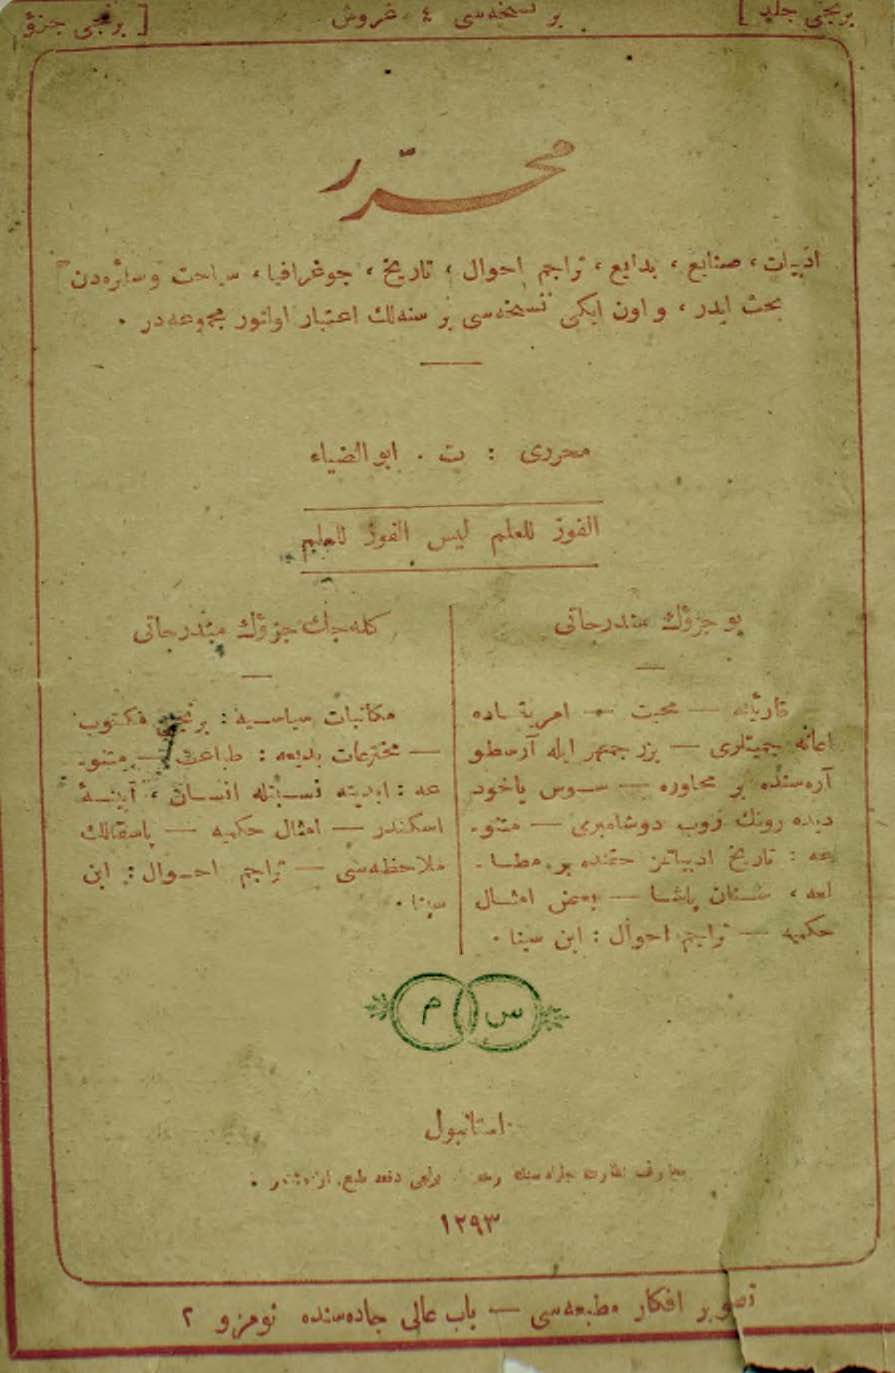 [ برنجی جلد
بر نسخه‌سی ٤ غروش
برنجی جزؤ ]
محرّر
ادبیات، صنایع، بدایع، تراجم احوال، تاریخ، جوغرافیا، سیاحت وسائره‌دن
بحث ایدر، و اون ایکی نسخه‌سی بر سنه‌لك اعتبار اولنور مجموعه‌در.
محرری : ت . ابوالضیاء
الفوز للعلم لیس الفوز للعلیم
بو جزؤك مندرجاتی
قارئینه — محبت — امریقاده
اعانه جمعیتلری — بزرجمهر ایله آرسطو
آره‌سنده بر محاوره — سوس یاخود
دیده رونك روب دوشامبری — متنو-
عه : تاریخ ادبیاتمز حقنده بر مطا-
لعه، سنان پاشا — بعض امثال
حکمیه — تراجم احوال : ابن سینا .
كله‌جك جزؤك مندرجاتی
مکاتبات سیاسیه : برنجی مکتوب
— مخترعات بدیعه : طباعت — متنو-
عه : ابدیته نسبتله انسان، آیینهٔ
اسکندر — امثال حکمیه — پاسقالك
ملاحظه‌سی — تراجم احوال : ابن
سینا .
س م
استانبول
معارف نظارت جلیله‌سنك برنجی دفعه طبع اولنمشدر .
١٢٩٣
تصویر افکار مطبعه‌سی — باب عالی جاده‌سنده نومرو ٢